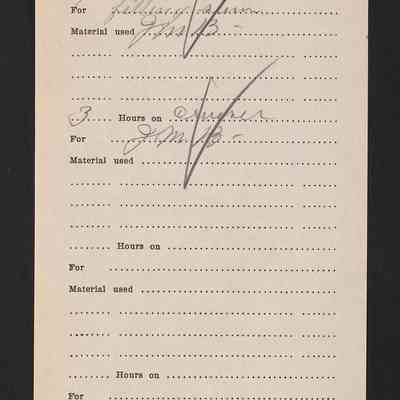 For
Material used J.M.B-
3 Hours on
For J.M.B-
Material used
Hours on
For
Material used
Hours on
For